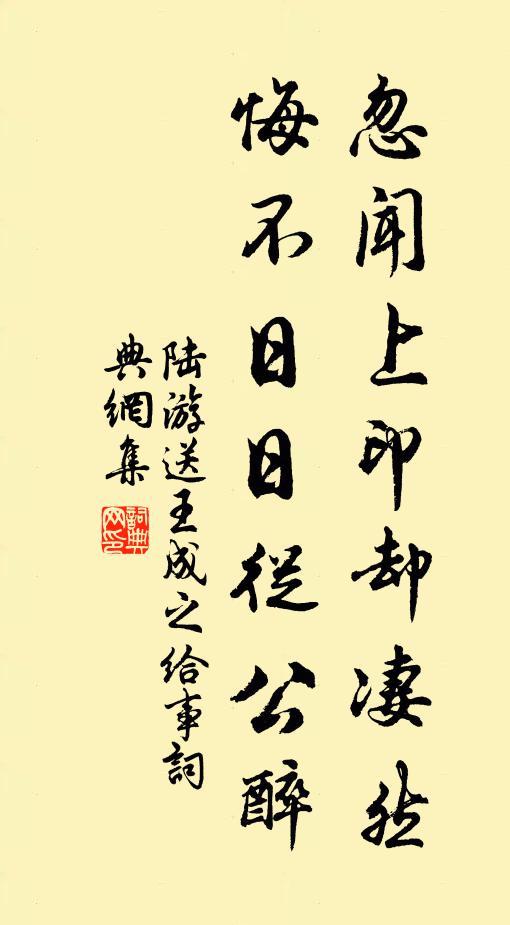 忽闻上印却凄然
悔不日日從公醉
陆游送王成之给事詞
典網集
詞典
网印